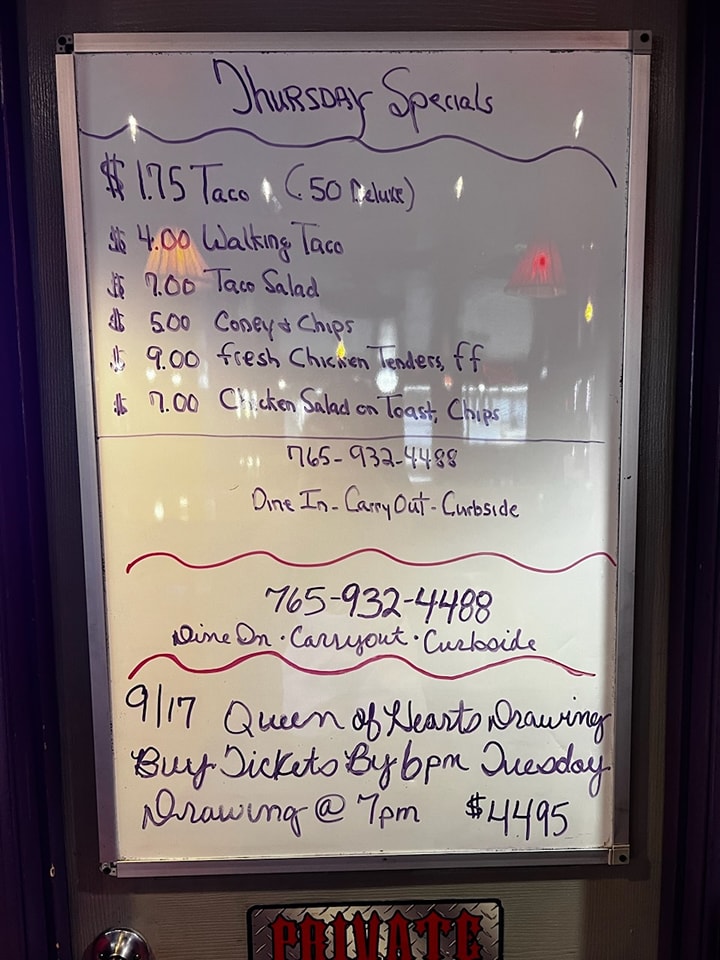 Thursday Specials
$ 1.75 Taco (.50 Deluxe)
$ 4.00 Walking Taco
$ 7.00 Taco Salad
$ 5.00 Coney & Chips
$ 9.00 fresh Chicken Tenders, ff
$ 7.00 Chicken Salad on Toast, Chips
765-932-4488
Dine In - Carry Out - Curbside
765-932-4488
Dine In · Carryout · Curbside
9/17 Queen of Hearts Drawing
Buy Tickets By 6pm Tuesday
Drawing @ 7pm $4495
PRIVATE